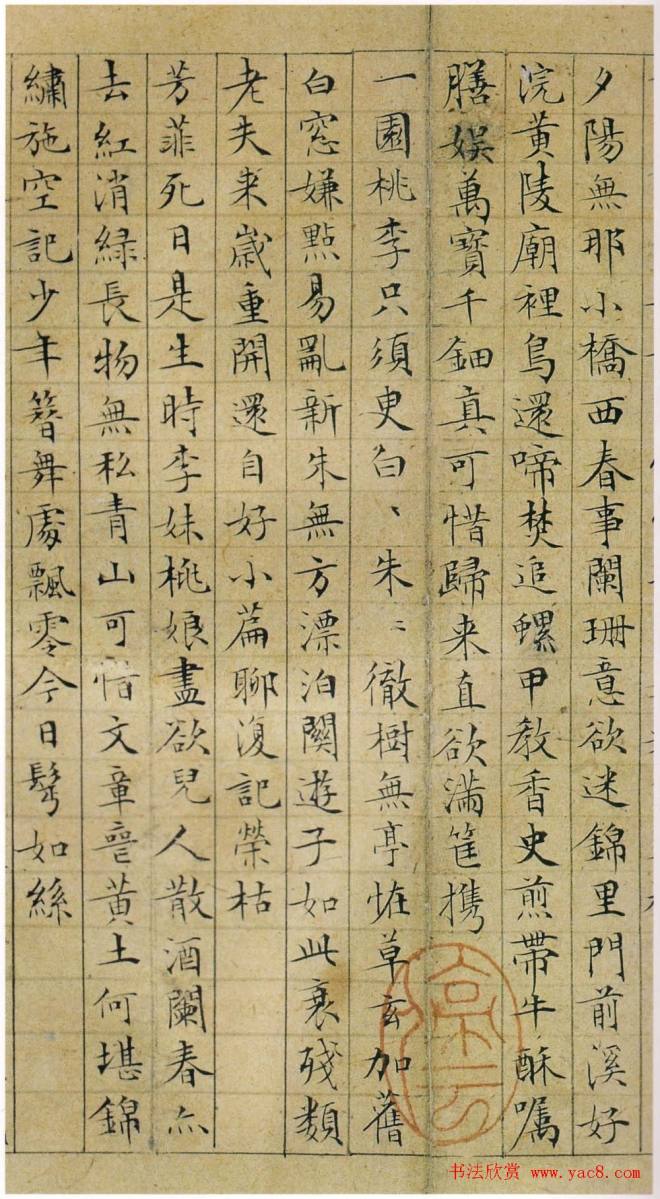 夕陽無那小橋西春事闌珊意欲迷錦里門前溪好
浣黃陵廟裡鳥還啼焚追螺甲教香史煎帶牛酥囑
膳娛萬寶千鈿真可惜歸来直欲滿筐攜
一園桃李只須臾白〻朱〻徹樹無亭恠草玄加舊
白窓嫌點易亂新朱無方漂泊關遊子如此衰殘類
老夫来歲重開還自好小篇聊復記榮枯
芳菲死日是生時李妹桃娘盡欲兒人散酒闌春亦
去紅消緑長物無私青山可惜文章喪黃土何堪錦
繡施空記少年簪舞處飄零今日鬢如絲
书法欣赏 www.yac8.com